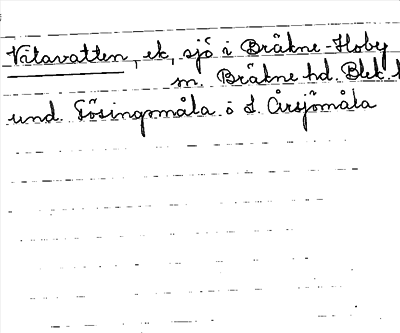 Vitavatten, ek, sjö i Bräkne-Hoby
sn. Bräkne hd. Blek. l
und. Gösingsmåla. ö S. Årsjömåla